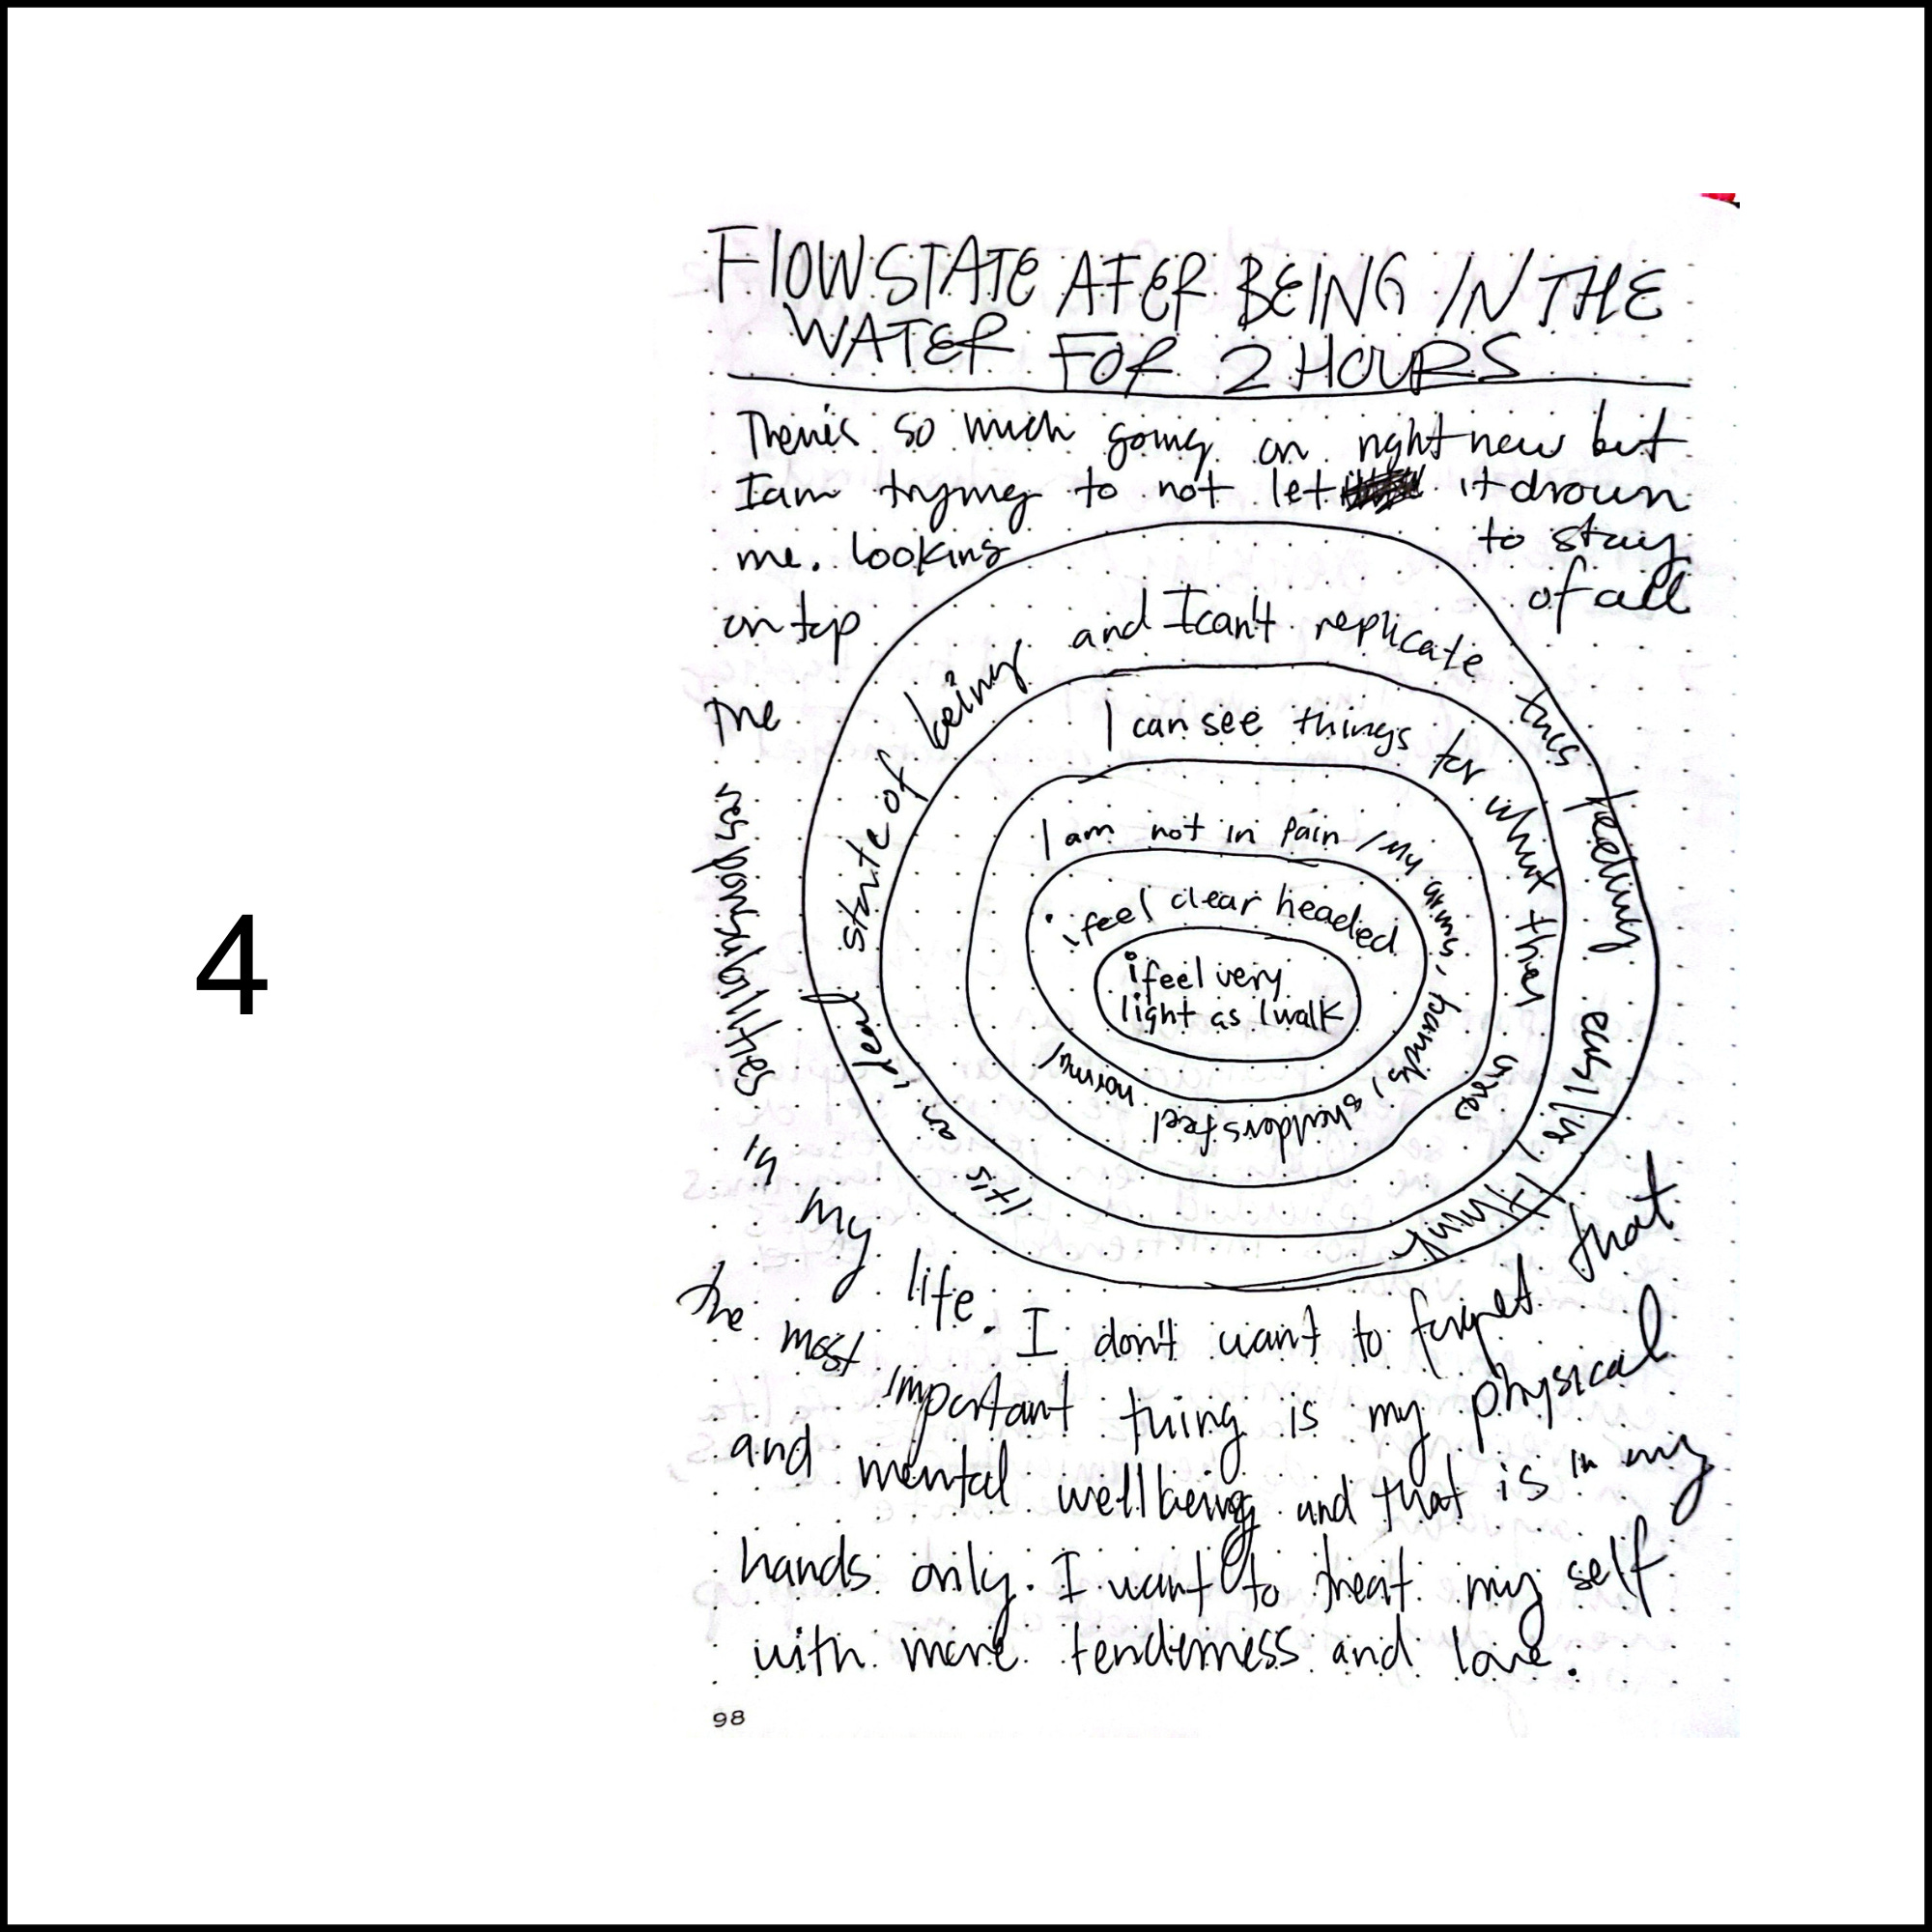 4
FlOW STATE AFER BEING IN THE
WATER FOR 2 HOURS
There's so much going on right now but
I am trying to not let it drown
me. looking to stay
on top of all
the
responsibilities
in
my
life. I don't want to forget that
the most important thing is my physical
and mental wellbeing and that is in my
hands only. I want to treat my self
with more tenderness and love.
It is an ideal state of being and I can't replicate this feeling easily, I think
I can see things for what they are
I am not in pain / My arms, hands, shoulders feel normal
i feel clear headed
i feel very
light as I walk
98